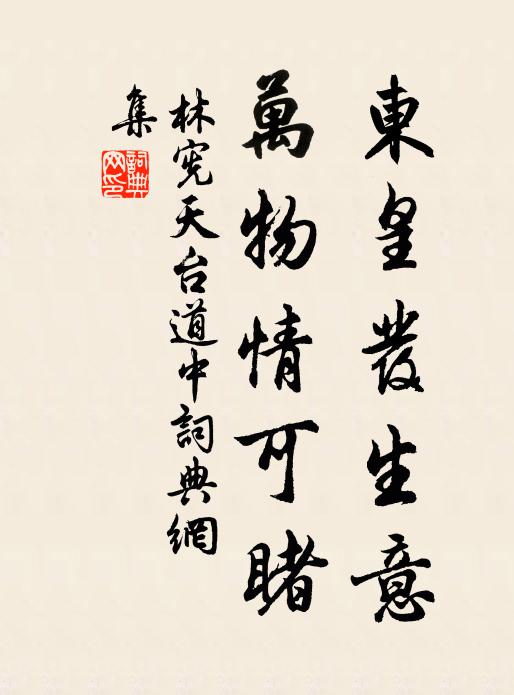 東皇發生意
萬物情可睹
林宪天台道中詞典網
集
詞典
网印